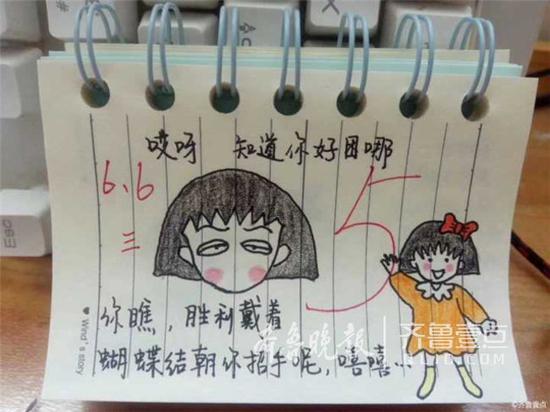 哎呀 知道你好困哪
6.6
三
5
你瞧,胜利戴着
蝴蝶结朝你招手呢,嘻嘻..
♥ Wind's story
Esc
齐鲁晚报 齐鲁壹点
©齐鲁壹点